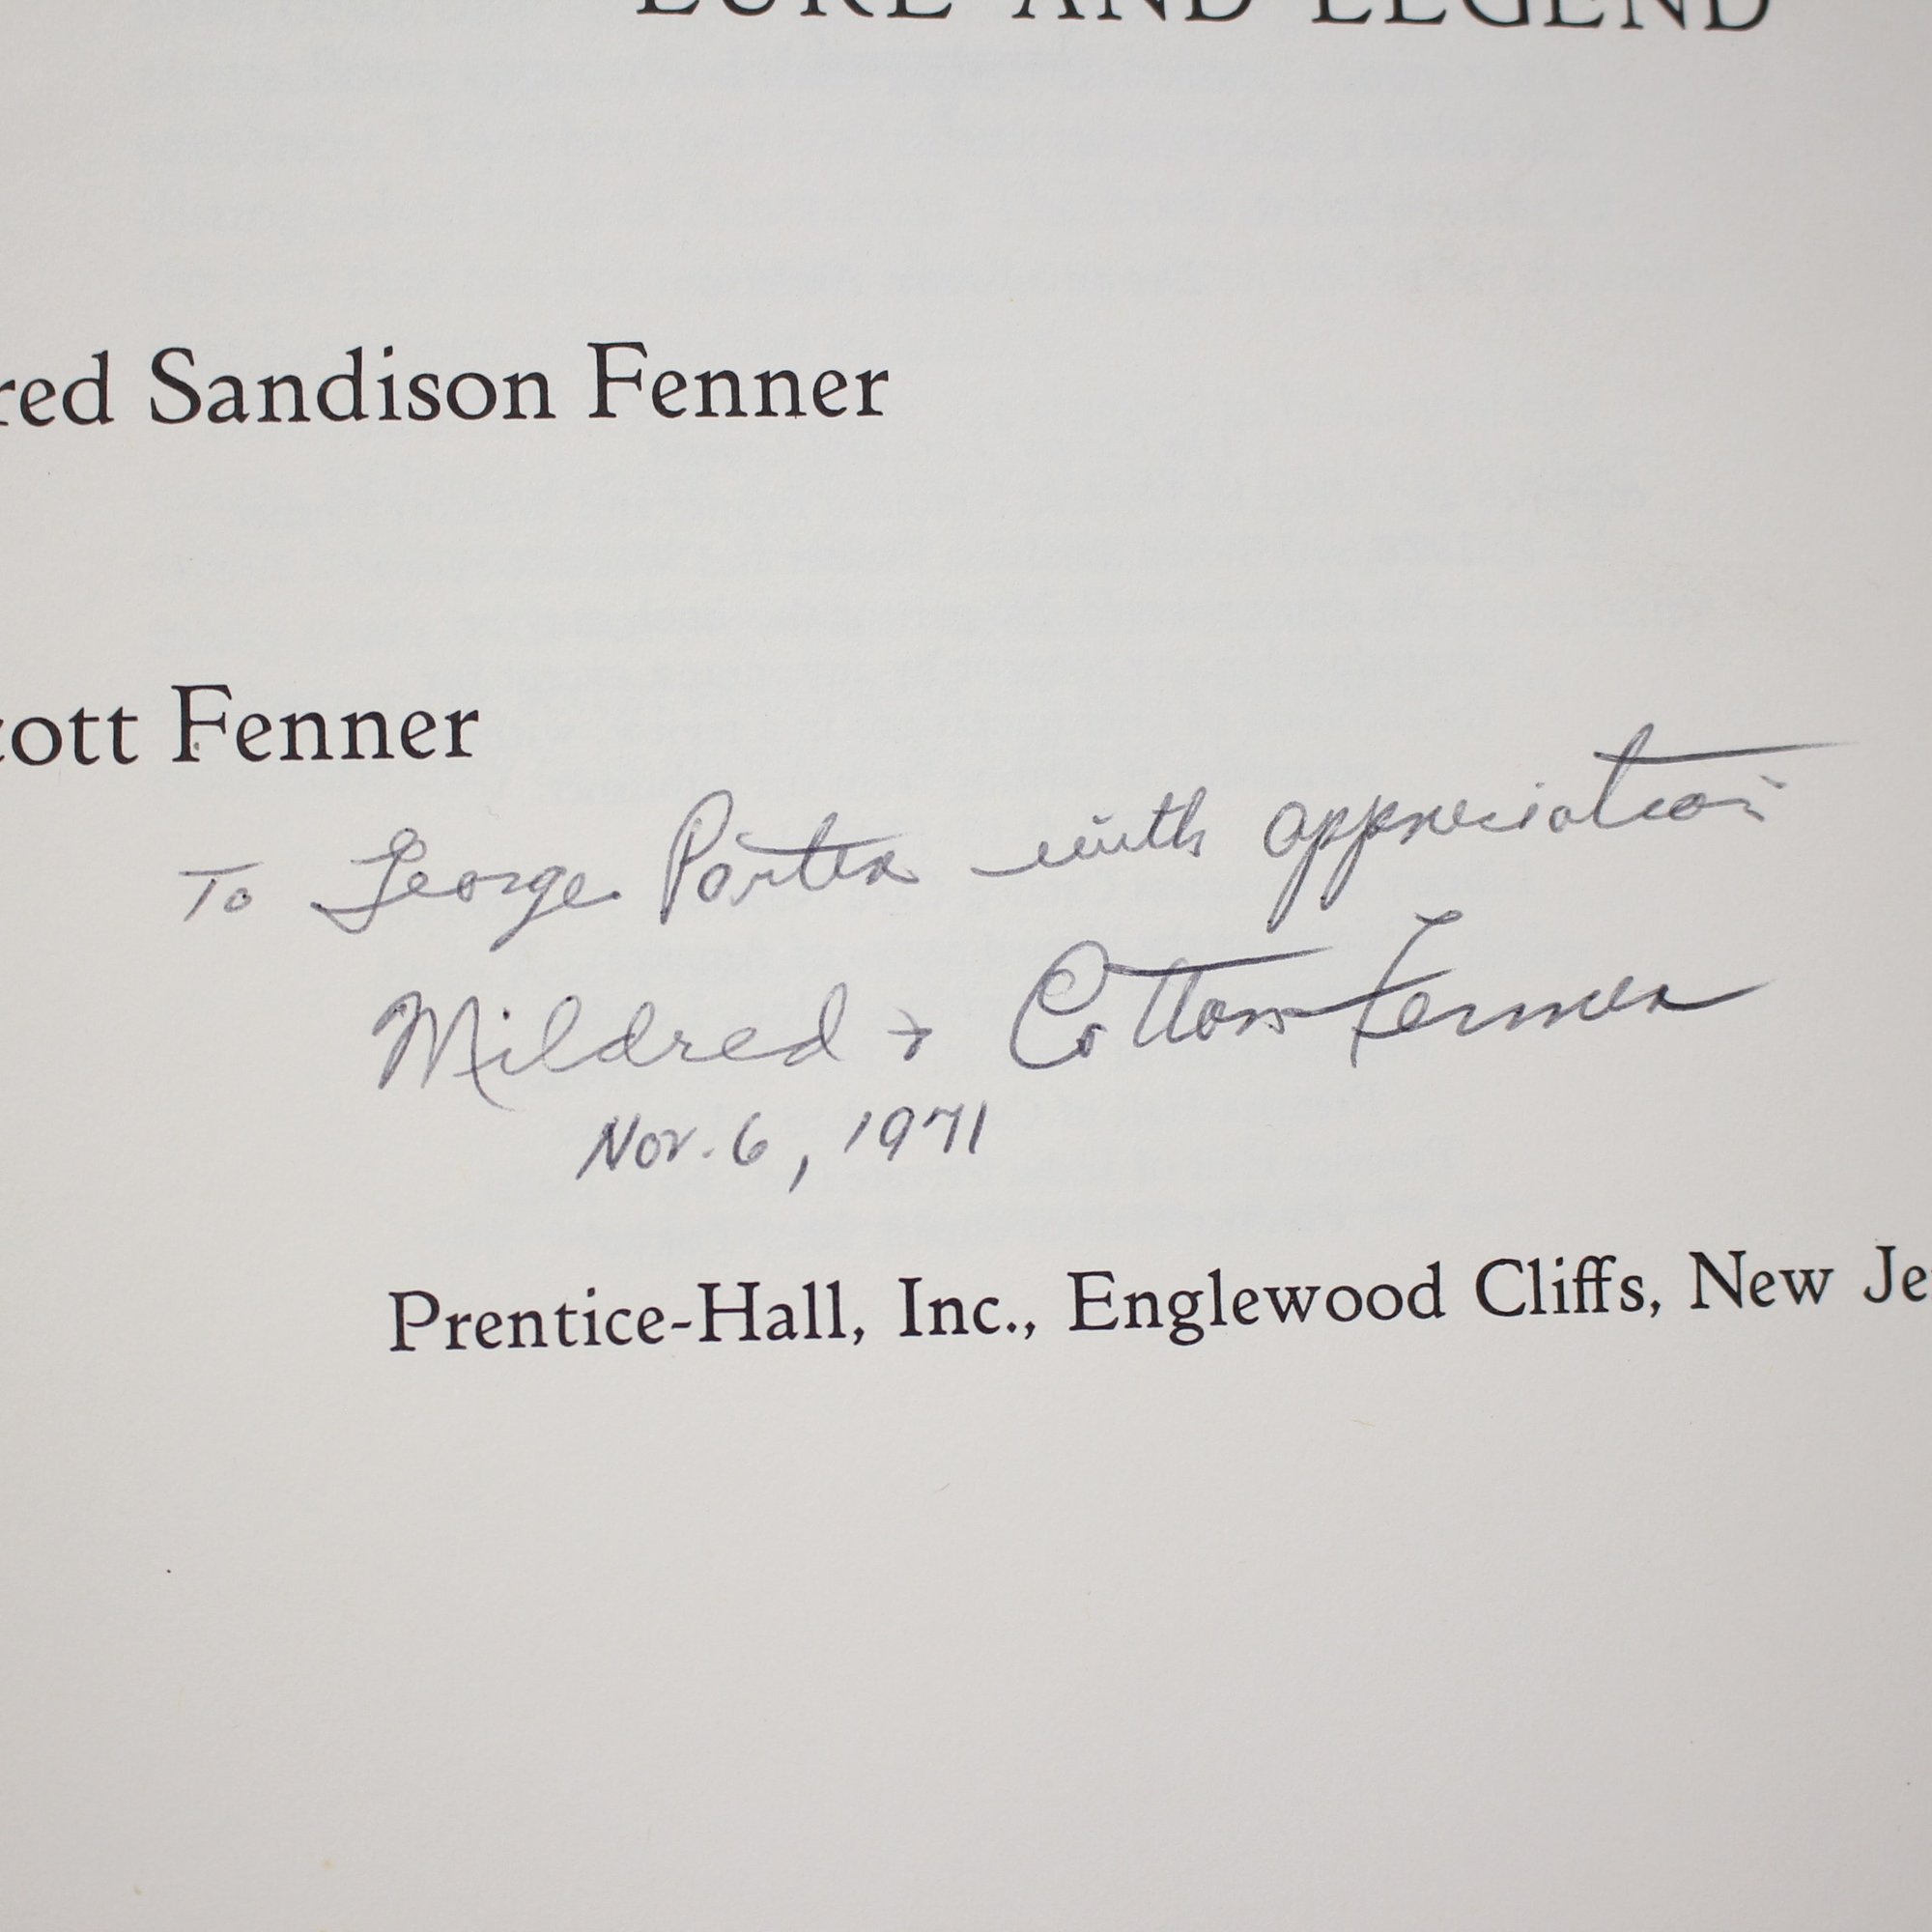 LURE AND LEGEND
red Sandison Fenner
cott Fenner
To George Porter with appreciation
Mildred + Cotton Fenner
Nov. 6, 1971
Prentice-Hall, Inc., Englewood Cliffs, New Je